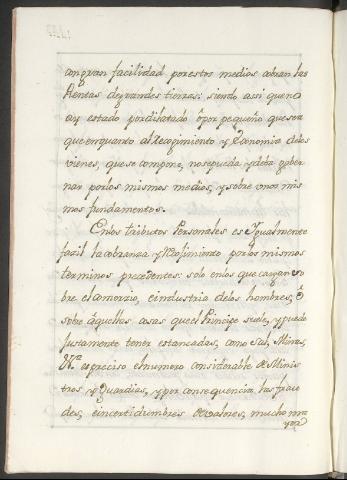 con gran facilidad por estos medios cobran las
Rentas de grandes tierras: siendo assi que no
ay estado por dilatado ò por pequeño que sea
que en quanto al Recogimiento y Economia delos
vienes, que se compone, no se pueda, y deba gober
nar por los mismos medios, y sobre unos mis
mos fundamentos.
En los tributos Personales es Igualmente
facil la cobranza y Recojimiento por los mismos
terminos precedentes: solo en los que cargan so
bre el comorzio, e industria delos hombres, ô
sobre âquellas cosas que el Principe suele, y puede
Justamente tener estancadas, como Sal, Minas,
&ª es preciso el numero considerable de Minis
tros y Guardias, y por consequencia las frau
des, e incertidumbres de valores, mucho ma
yor